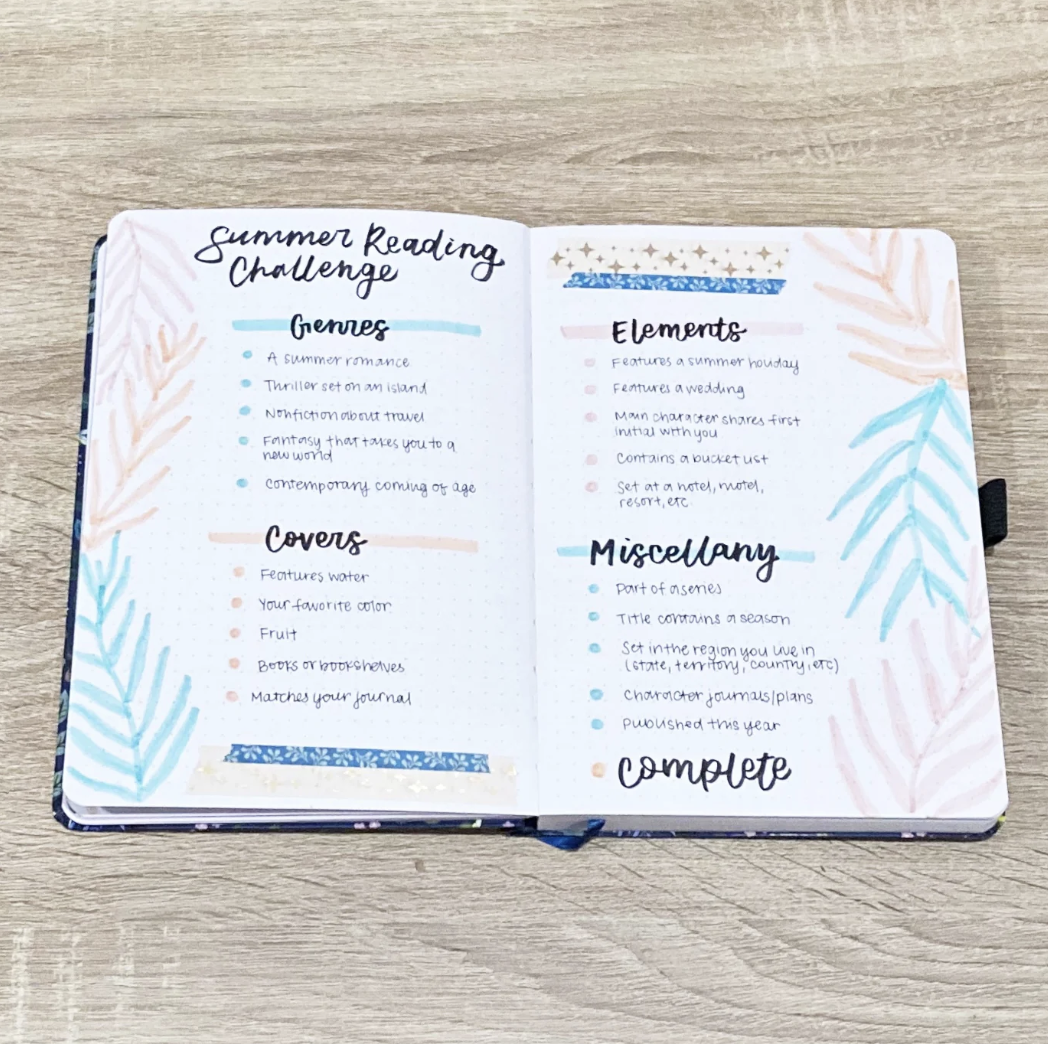 Summer Reading
Challenge
Genres
A summer romance
Thriller set on an island
Nonfiction about travel
Fantasy that takes you to a
new world
Contemporary coming of age
Covers
Features water
Your favorite color
Fruit
Books or bookshelves
Matches your journal
Elements
Features a summer holiday
Features a wedding
Main character shares first
initial with you
Contains a bucket list
Set at a hotel, motel,
resort, etc.
Miscellany
Part of a series
Title contains a season
Set in the region you live in
(state, territory, country, etc)
Character journals/plans
Published this year
Complete